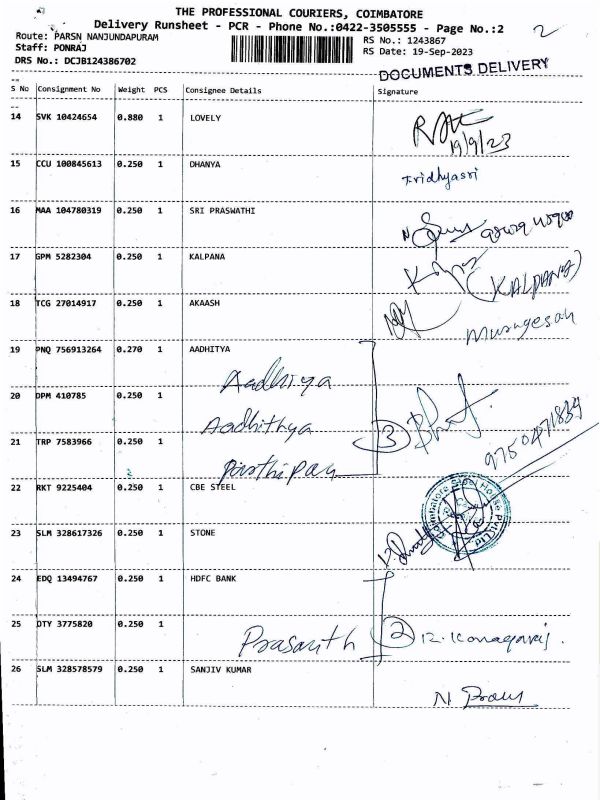 THE PROFESSIONAL COURIERS, COIMBATORE
Delivery Runsheet - PCR - Phone No.:0422-3505555 - Page No.:2
2
Route: PARSN NANJUNDAPURAM
RS No.: 1243867
Staff: PONRAJ
RS Date: 19-Sep-2023
DRS No.: DCJB124386702
DOCUMENTS DELIVERY
S No Consignment No Weight PCS Consignee Details Signature
14 SVK 10424654 0.880 1 LOVELY
19/9/23
15 CCU 100845613 0.250 1 DHANYA
Fridhyasri
16 MAA 104780319 0.250 1 SRI PRASWATHI
17 GPM 5282304 0.250 1 KALPANA
(KALPANA)
18 TCG 27014917 0.250 1 AKAASH
Murugesan
19 PNQ 756913264 0.270 1 AADHITYA
Aadhiya
20 DPM 410785 0.250 1
Aadhithya
3
21 TRP 7583966 0.250 1
Parthipan
9750471839
2
22 RKT 9225404 0.250 1 CBE STEEL
Coimbatore Steel House Pvt Ltd
23 SLM 328617326 0.250 1 STONE
24 EDQ 13494767 0.250 1 HDFC BANK
25 DTY 3775820 0.250 1
Prasanth 2 R. Kanagaraj.
26 SLM 328578579 0.250 1 SANJIV KUMAR